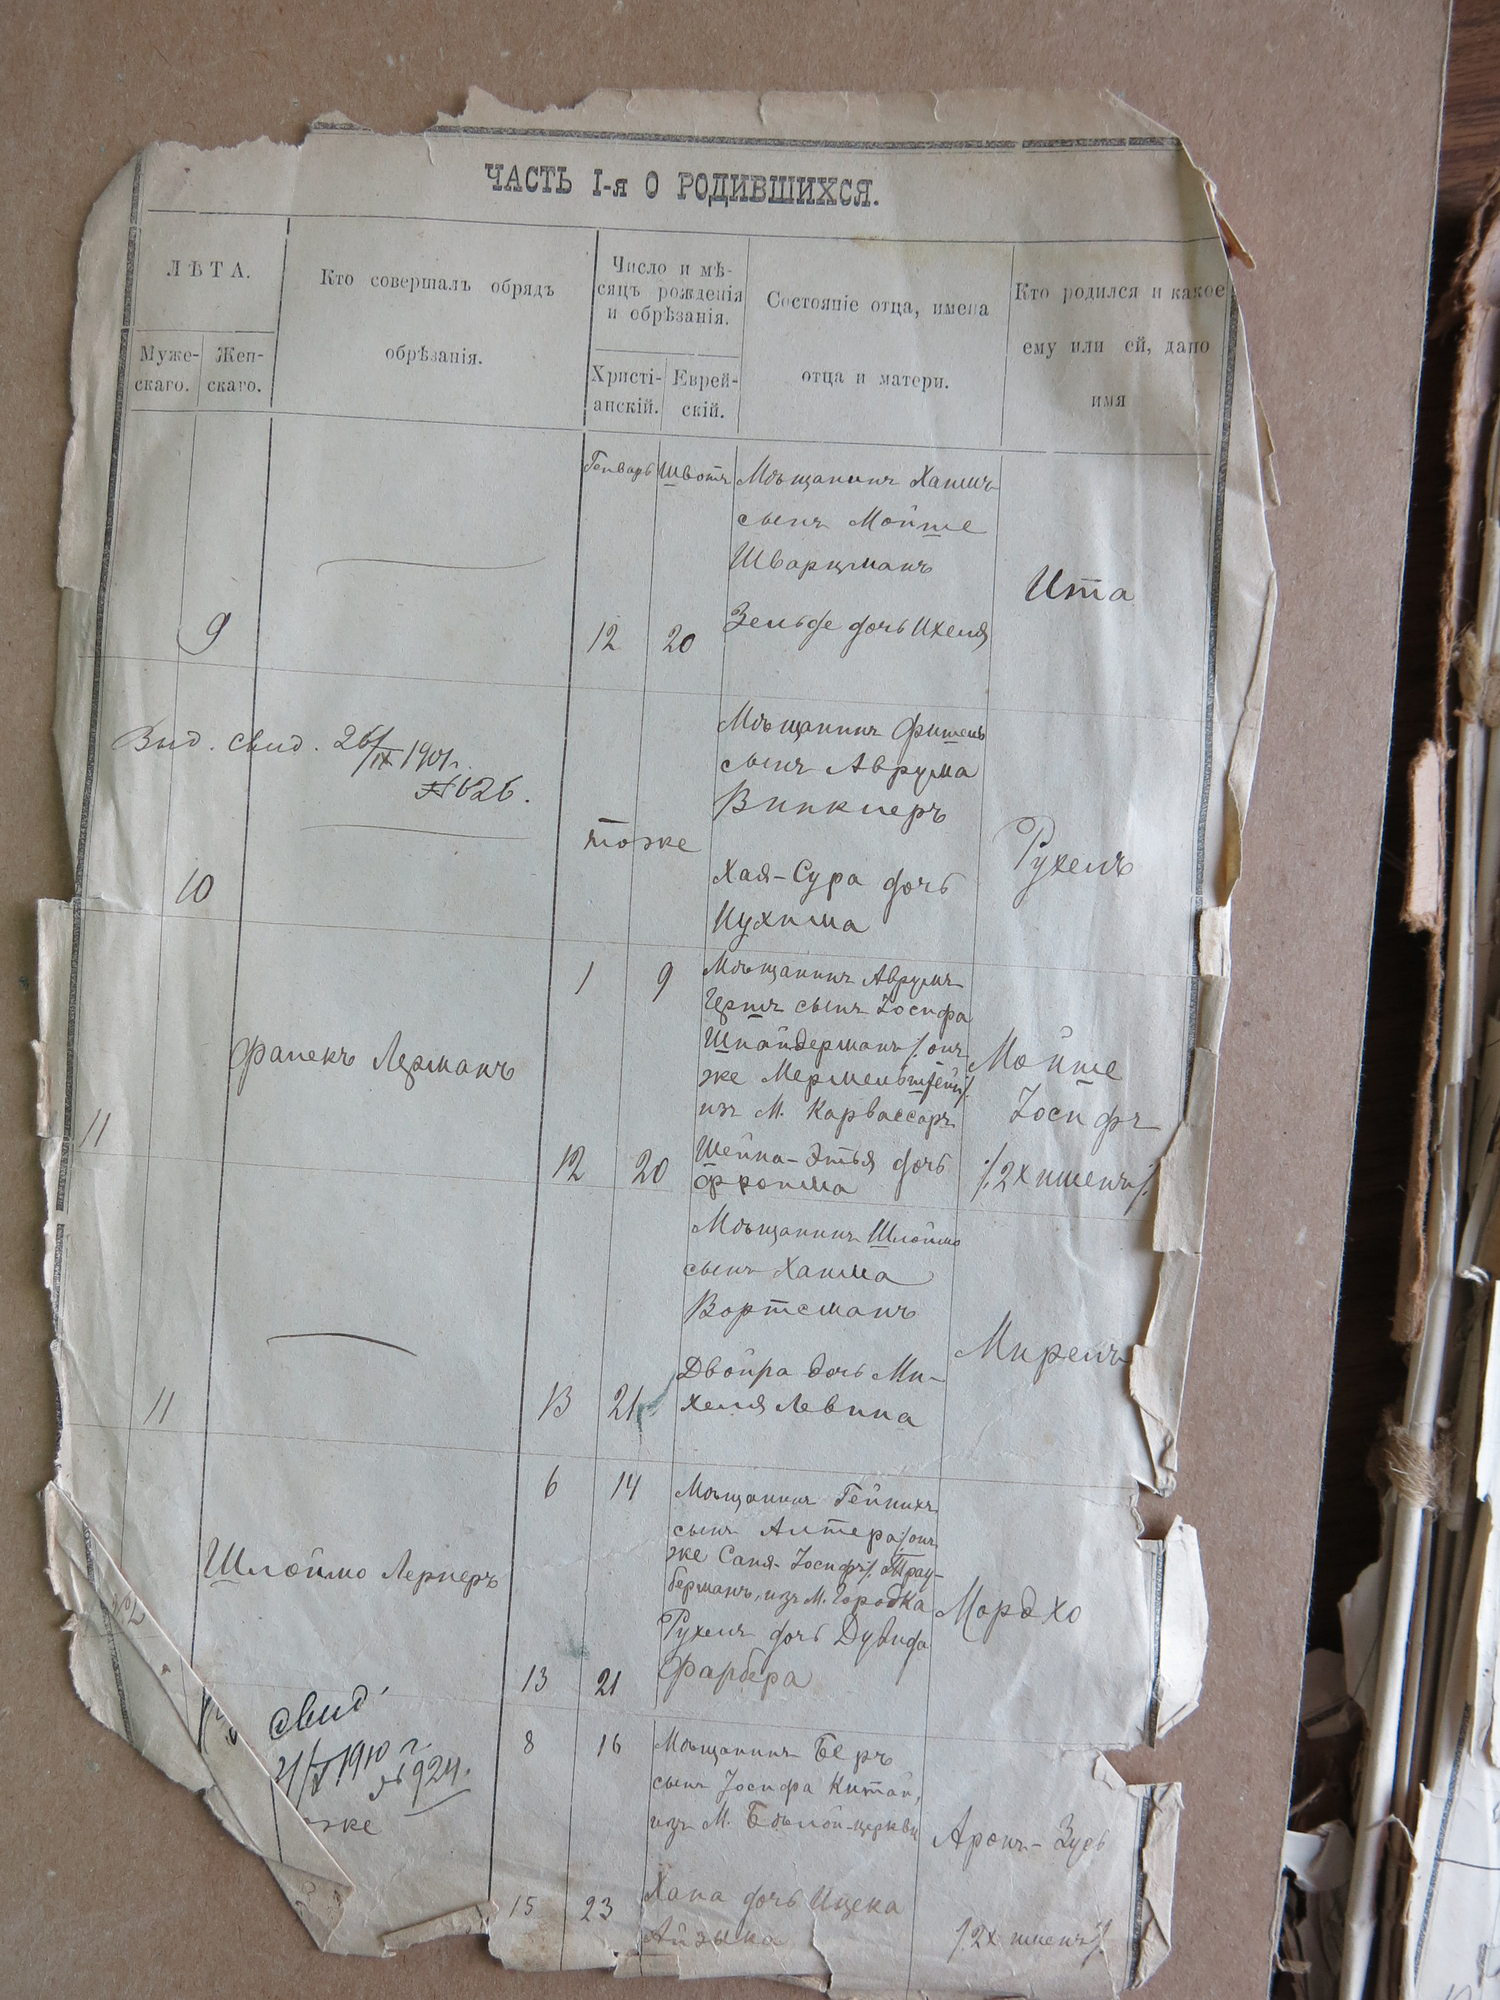 ЧАСТЬ I-я О РОДИВШИХСЯ.
ЛѢТА.
Муже-
скаго.
Жен-
скаго.
Кто совершалъ обрядъ
обрѣзанія.
Число и мѣ-
сяцъ рожденія
и обрѣзанія.
Христі-
анскій.
Еврей-
скій.
Состояніе отца, имена
отца и матери.
Кто родился и какое
ему или ей, дано
имя
Генварь Швотъ
Мѣщанинъ Хаимъ
сынъ Мойше
Шварцманъ
Зельде дочь Ихеля
9
12 20
Ита
Выд. свид. 26/IX 1901г.
№ 626.
Мѣщанинъ Фишель
сынъ Аврума
Винклеръ
тоже
Хая-Сура дочь
Нухима
10
Рухель
1 9
Мѣщанинъ Аврумъ
Гершъ сынъ Іосифа
Шнайдерманъ /: онъ
же Мермельштейнъ :/
изъ М. Карвассаръ
Шейна-Этья дочь
Фроима
Фалекъ Лерманъ
11
12 20
Мойше
Іосифъ
/: 2хименъ :/
Мѣщанинъ Шлоймо
сынъ Хаима
Вортсманъ
Двойра дочь Ми-
хеля Левина
11
13 21
Мирель
6 14
Мѣщанинъ Гейнихъ
сынъ Алтера /: онъ
же Саня-Іосифъ :/ Трау-
берманъ, изъ М. Городка
Рухель дочь Дувида
Фарбера
Шлоймо Лернеръ
13 21
Мордхо
свид.
1910 г.
№ 924.
же
8 16
Мѣщанинъ Беръ
сынъ Іосифа Китай,
изъ М. Бѣлой-церкви
Хана дочь Ицека
Айзыка
15 23
Аронъ-Зусь
/: 2х именъ :/